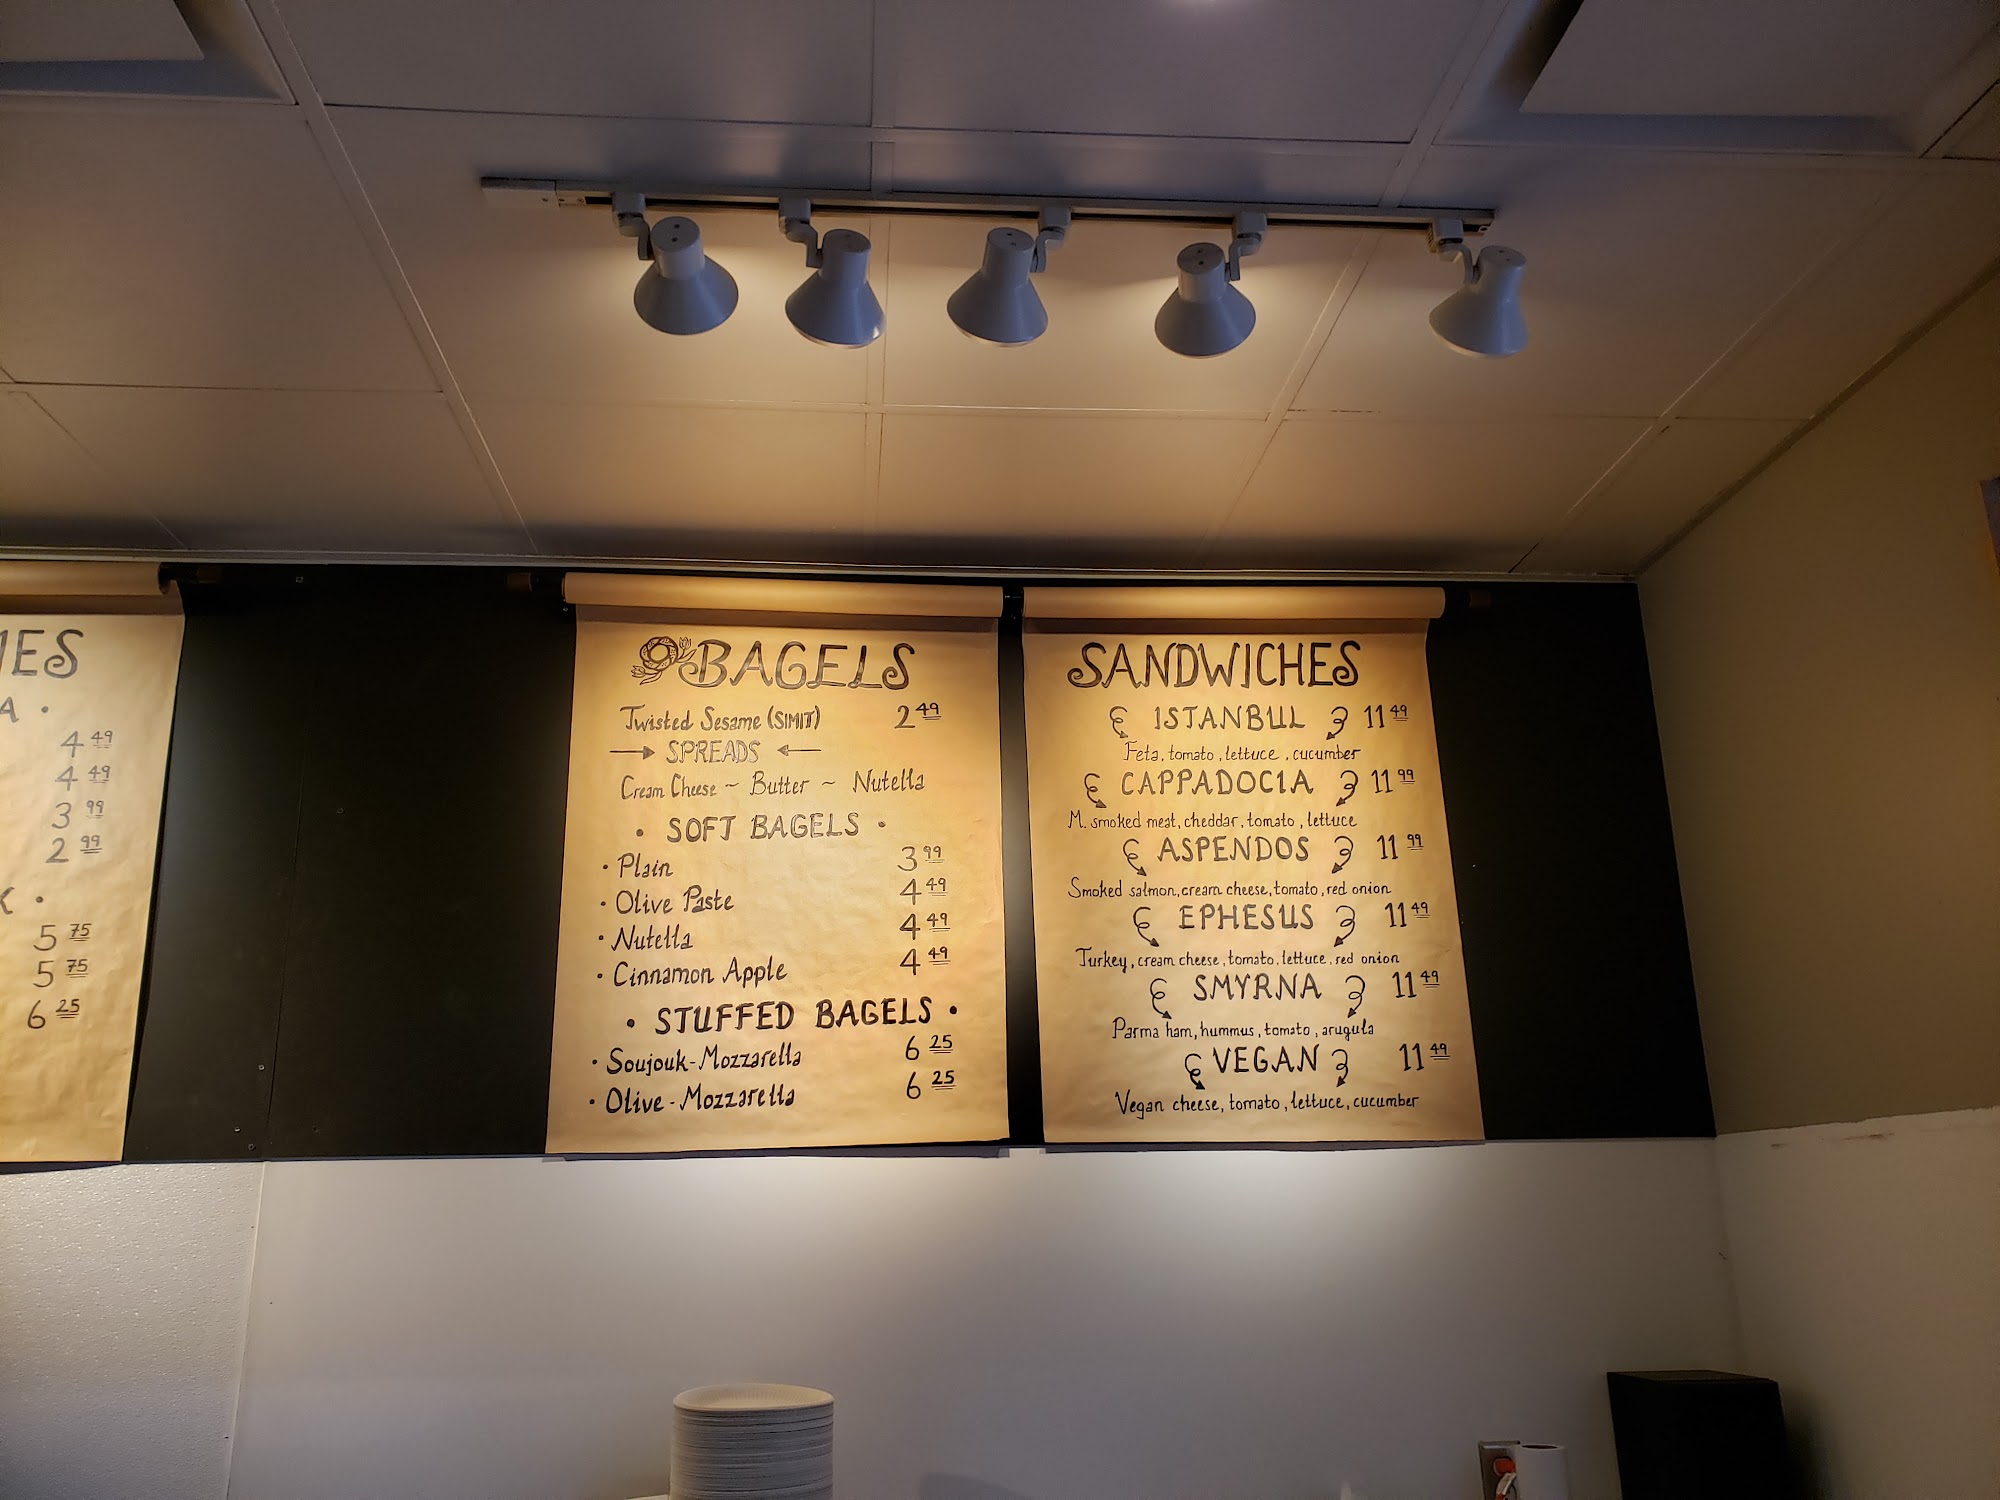 IES
A •
4 49
4 49
3 99
2 99
K •
5 75
5 75
6 25
BAGELS
Twisted Sesame (SIMIT) 2 49
SPREADS
Cream Cheese ~ Butter ~ Nutella
• SOFT BAGELS •
• Plain 3 99
• Olive Paste 4 49
• Nutella 4 49
• Cinnamon Apple 4 49
• STUFFED BAGELS •
• Soujouk-Mozzarella 6 25
• Olive-Mozzarella 6 25
SANDWICHES
ISTANBUL 11 49
Feta, tomato, lettuce, cucumber
CAPPADOCIA 11 99
M. smoked meat, cheddar, tomato, lettuce
ASPENDOS 11 99
Smoked salmon, cream cheese, tomato, red onion
EPHESUS 11 49
Turkey, cream cheese, tomato, lettuce, red onion
SMYRNA 11 49
Parma ham, hummus, tomato, arugula
VEGAN 11 49
Vegan cheese, tomato, lettuce, cucumber